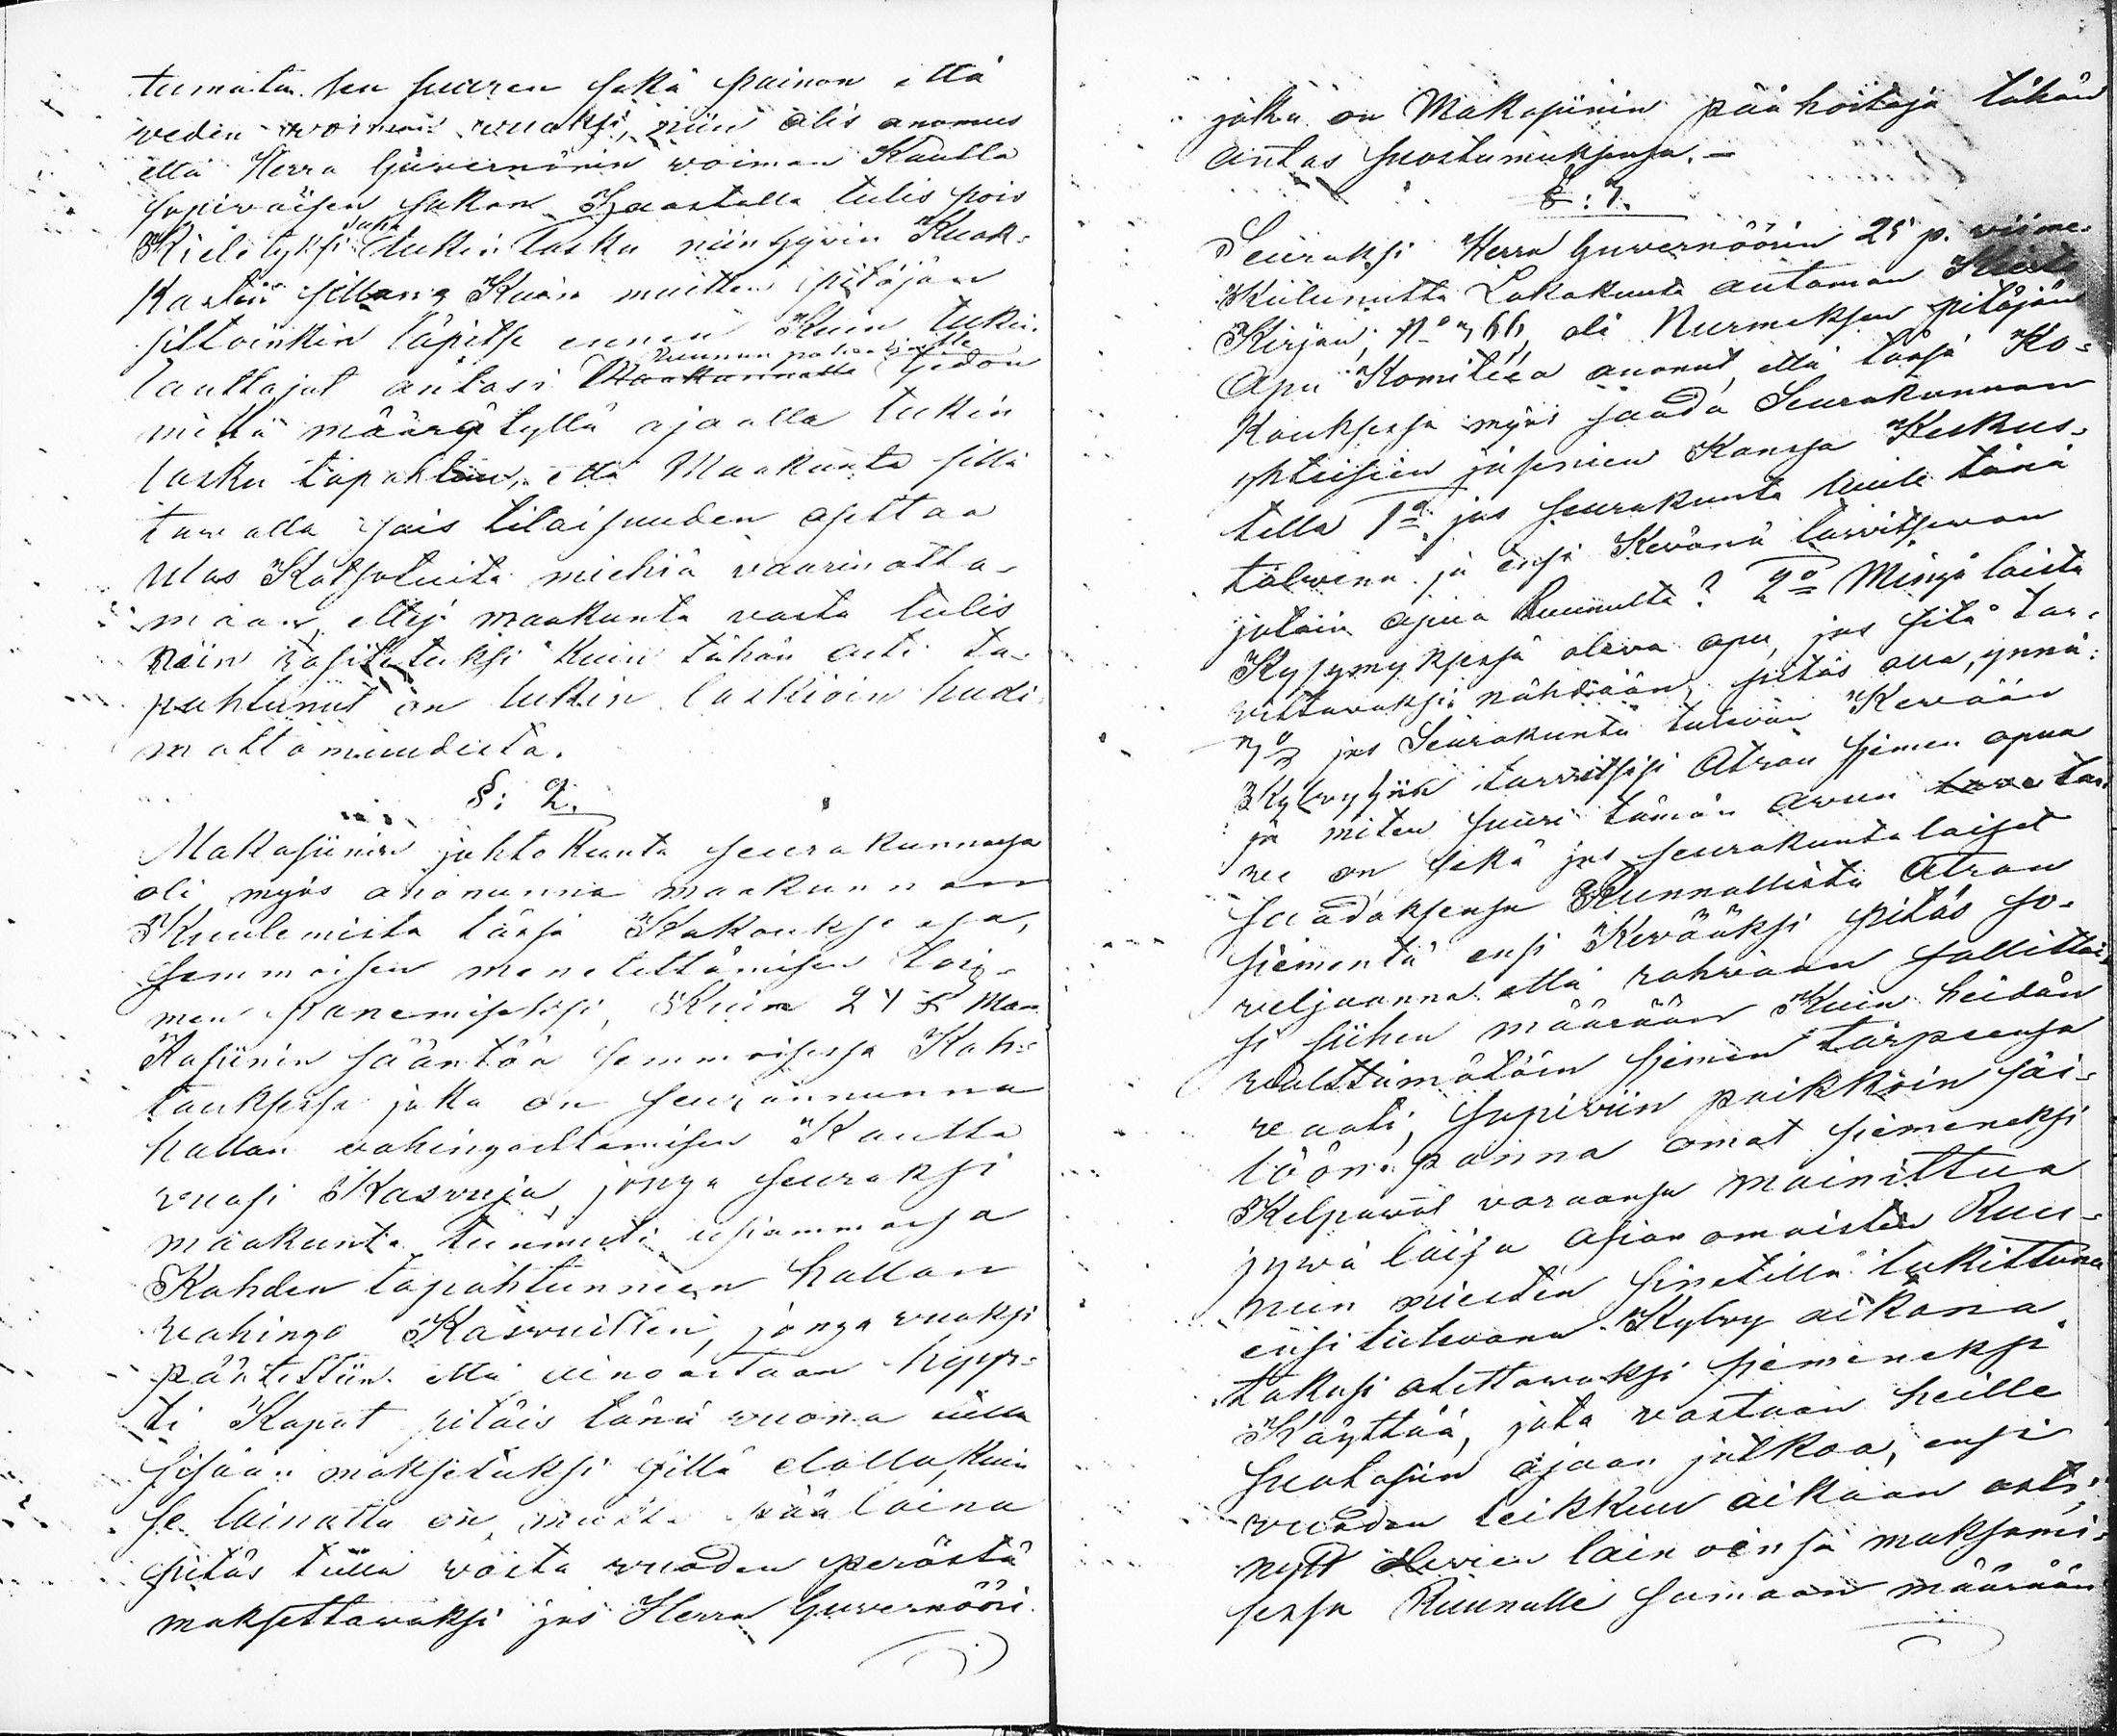 tumata sen suuren sekä painon että
veden voiman vuoksi, niin olis anomus
että Herra Guvernörin voiman Kautta
sopivaisen sakon haastolla tulis pois
Kieletyksi tukin lasku niinhyvin Kuok-
Kastin sillang Kuin muitten pitäjän
siltoinkin läpitse ennen Kuin tukin
lauttajat antasi Ruunun palvelialle tiedon
millä määrätyllä ajalla tukin
lasku tapahtuu, että Maakunta sillä
tavalla sais tilaisuuden asettaa
ulos Katsotuita miehiä vaarinotta-
maan, ettej maakunta vasta tulis
näin rasitetuksi Kuin tähän asti ta-
pahtunut on tukin laskioin huoli-
mattomuudesta.
§: 2.
Makasiinin johtokunta seurakunnassa
oli myös anonunna maakunnan
Kuulemista tässä Kokouksessa,
semmoisen menetettämisen toi-
men panemiseksi, Kuin 24 § Ma-
Kasiinin sääntöä semmoisessa Koh-
tauksessa joka on seurannunna
hallan vahingoittamisen Kautta
vuosi Kasvuja, jonga seuraksi
maakunta tunnusti useammassa
Kohden tapahtunneen hallan
vahingo Kasvuillen, jonga vuoksi
päätettiin että ainoastaan hyys-
ti Kapat pitäis tänä vuona tulla
sisään maksetuksi sillä elolla, Kuin
se lainattu on, mutta pää laina
pitäs tulla vasta vuoden perästä
maksettavaksi jos Herra Guvernööri
joka on Makasiinin pää hoitaja tähän
antas suostumuksensa. –
§: 3.
Seuraksi Herra Guvernöörin 25 p. viime
Kulunutta Lokakuuta antaman Kierto
Kirjan, No 366, oli Nurmeksen pitäjän
Apu Komiteea anonut, että tässä Ko-
Kouksessa myös saada Seurakunnan
yhteisien jäsenien Kanssa Keskus-
tella 1o jos seurakunta luule tänä
talvena ja ensi Kevänä tarvitsevan
jotain apua Ruunulta? 2o Minjä laista
Kysymyksessä oleva apu, jos sitä tar-
vittavaksi nähdään, pitäs olla, ynnä:
3o jos Seurakunta tulevan Kevään
Kylvyhin tarvitsisi Otran siemen apua
ja miten suuri tämän avun tar-
ve on sekä jos seurakuntalaiset
saadaksensa Ruunullista Otran
siementä ensi Kevääksi pitäs so-
veljaanna että rahvaan sallittai-
si siihen määrään Kuin heidän
välttämätöin siemen tarpeensa
vaati, sopiviin paikkoin säi-
löön panna omat siemeneksi
Kelpaavat varaansa mainittua
jyvä laija asianomaisten Ruu-
nun miesten sinetillä lukittuna
ensi tulevana Kylvy aikana
takasi otettavaksi siemeneksi
Käyttää, jota vastaan heille
suotasiin ajaan jatkoa, ensi
vuoden leikkuu aikaan asti,
nytt olevien lainoinsa maksami-
sessa Ruunulle samaan määrään